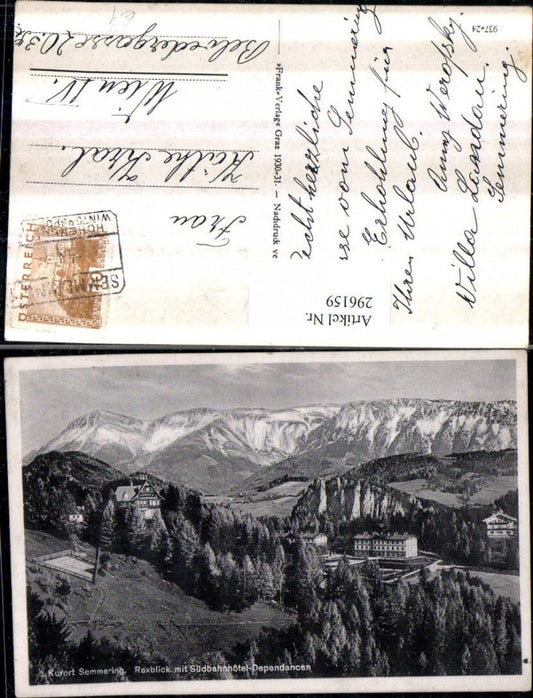 937-24
Recht herzliche
se vom Semmering
Erholung für
Ihren Urlaub.
Anny
Villa Landau.
Semmering.
»Frank«-Verlag, Graz 1930-31. — Nachdruck ve
Frau
Käthe Kral.
Wien IV.
Belvederegasse 20.
ÖSTERREICH
SEMMER
HÖHEN
WINTERSPO
Artikel Nr.
296159
Kurort Semmering. Raxblick mit Südbahnhotel-Dependancen